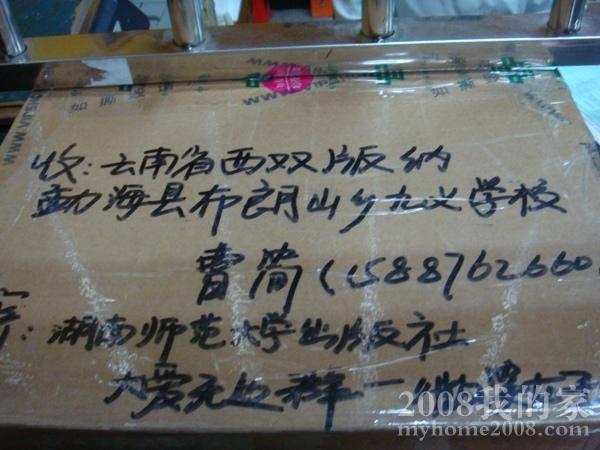 收:云南省西双版纳
勐海县布朗山乡九义学校
曹简(15887626660
寄:湖南师范大学出版社
大爱无边群一
2008我的家
myhome2008.com